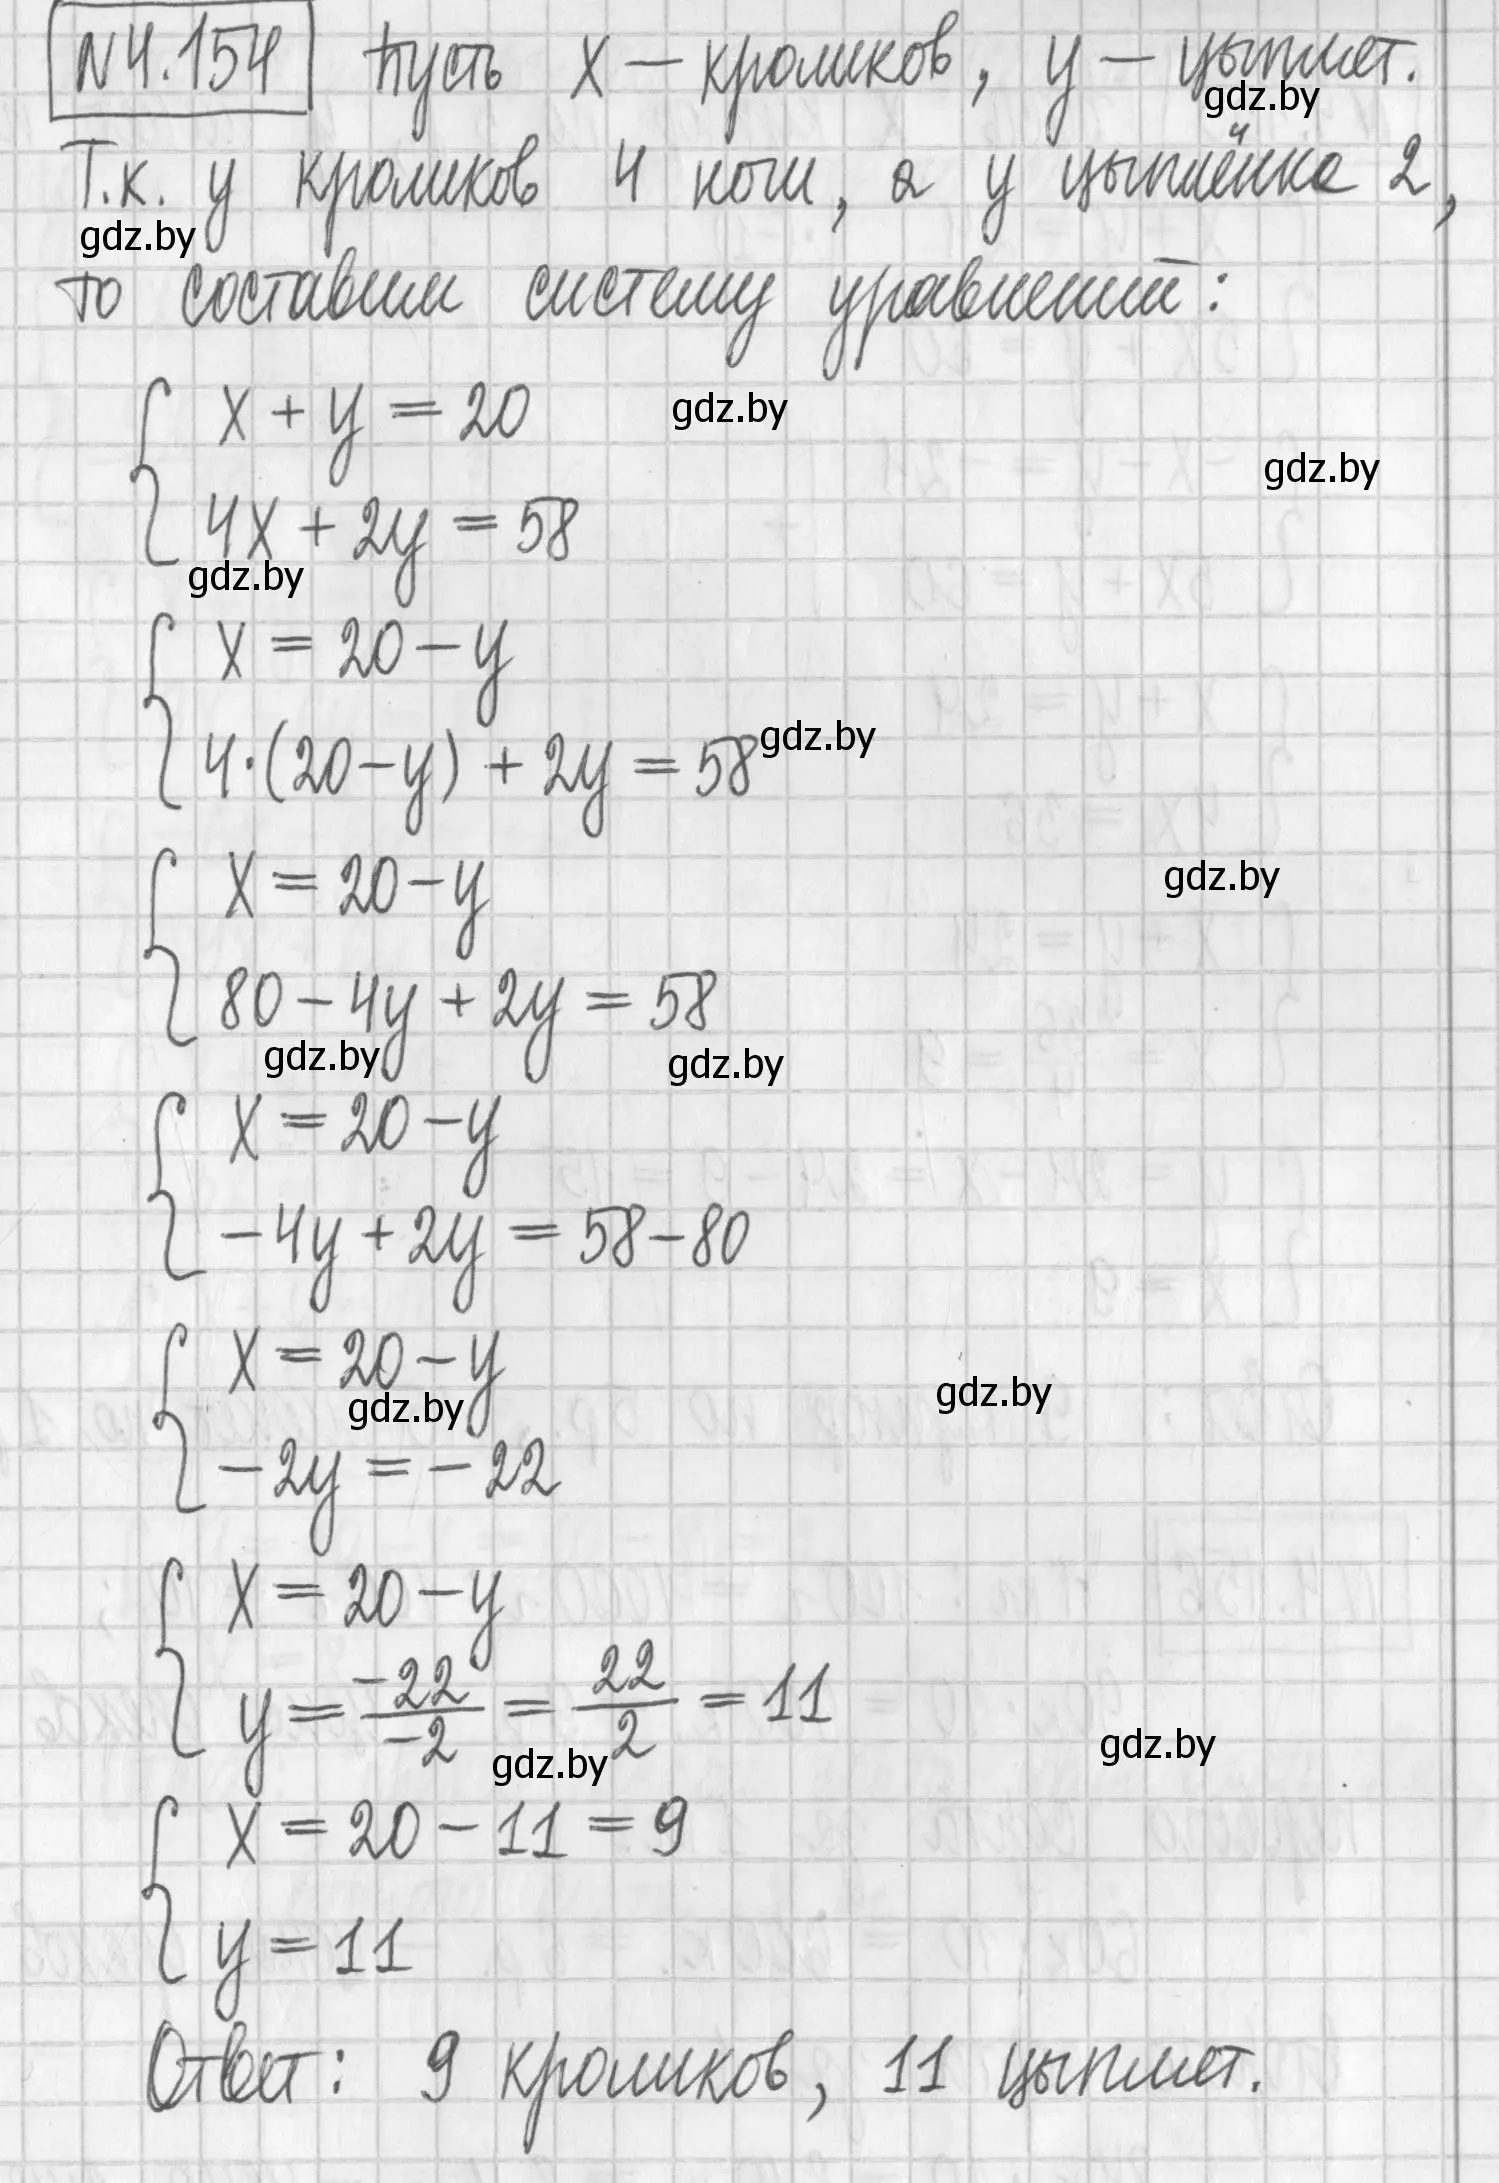 N4.154 Пусть x – кроликов, y – цыплят.
gdz.by
Т.к. у кроликов 4 ноги, а у цыплёнка 2,
gdz.by
то составим систему уравнений:
x + y = 20
gdz.by
gdz.by
4x + 2y = 58
gdz.by
x = 20 – y
4·(20 – y) + 2y = 58
gdz.by
x = 20 – y
gdz.by
80 – 4y + 2y = 58
gdz.by
gdz.by
x = 20 – y
–4y + 2y = 58 – 80
x = 20 – y
gdz.by
gdz.by
–2y = –22
x = 20 – y
y = –22/–2 = 22/2 = 11
gdz.by
gdz.by
x = 20 – 11 = 9
y = 11
Ответ: 9 кроликов, 11 цыплят.